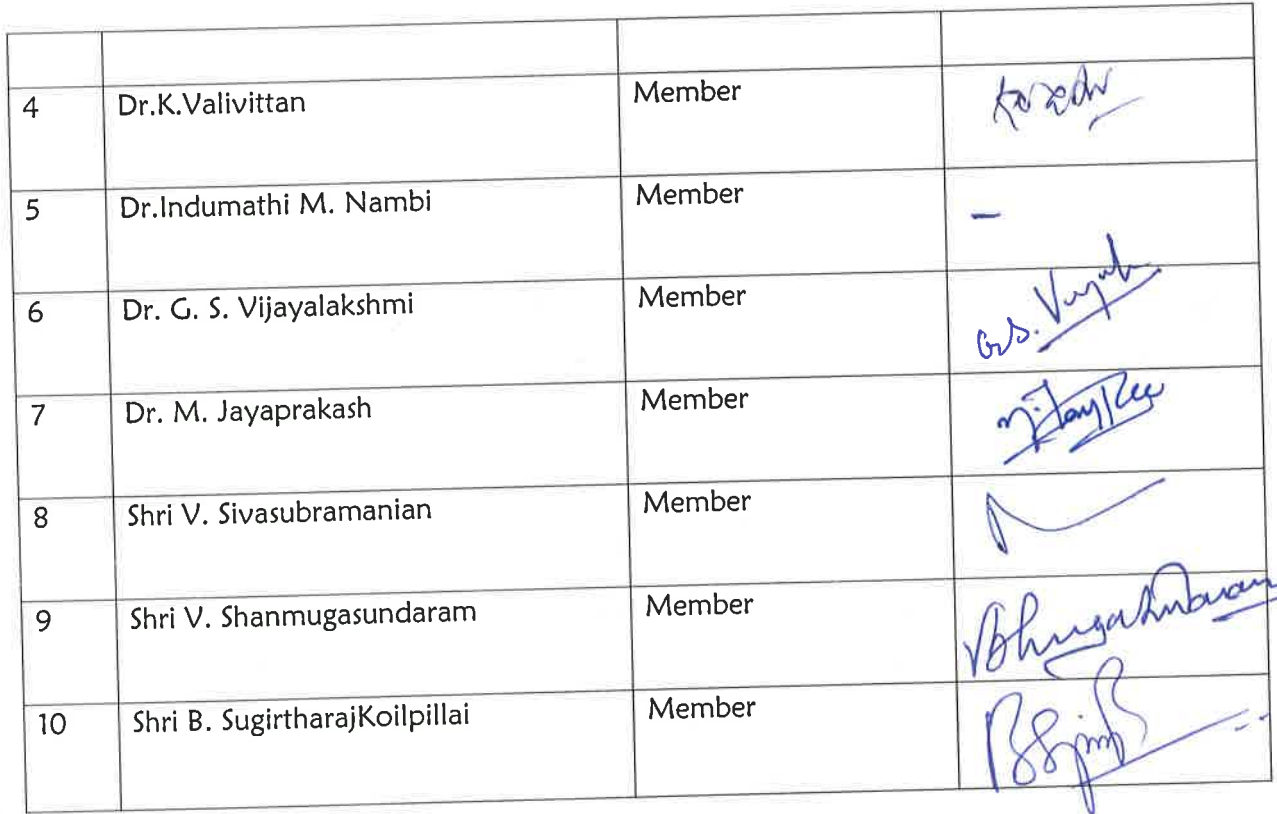 4 Dr.K.Valivittan Member
5 Dr.Indumathi M. Nambi Member -
6 Dr. G. S. Vijayalakshmi Member G.S.
7 Dr. M. Jayaprakash Member
8 Shri V. Sivasubramanian Member
9 Shri V. Shanmugasundaram Member
10 Shri B. SugirtharajKoilpillai Member